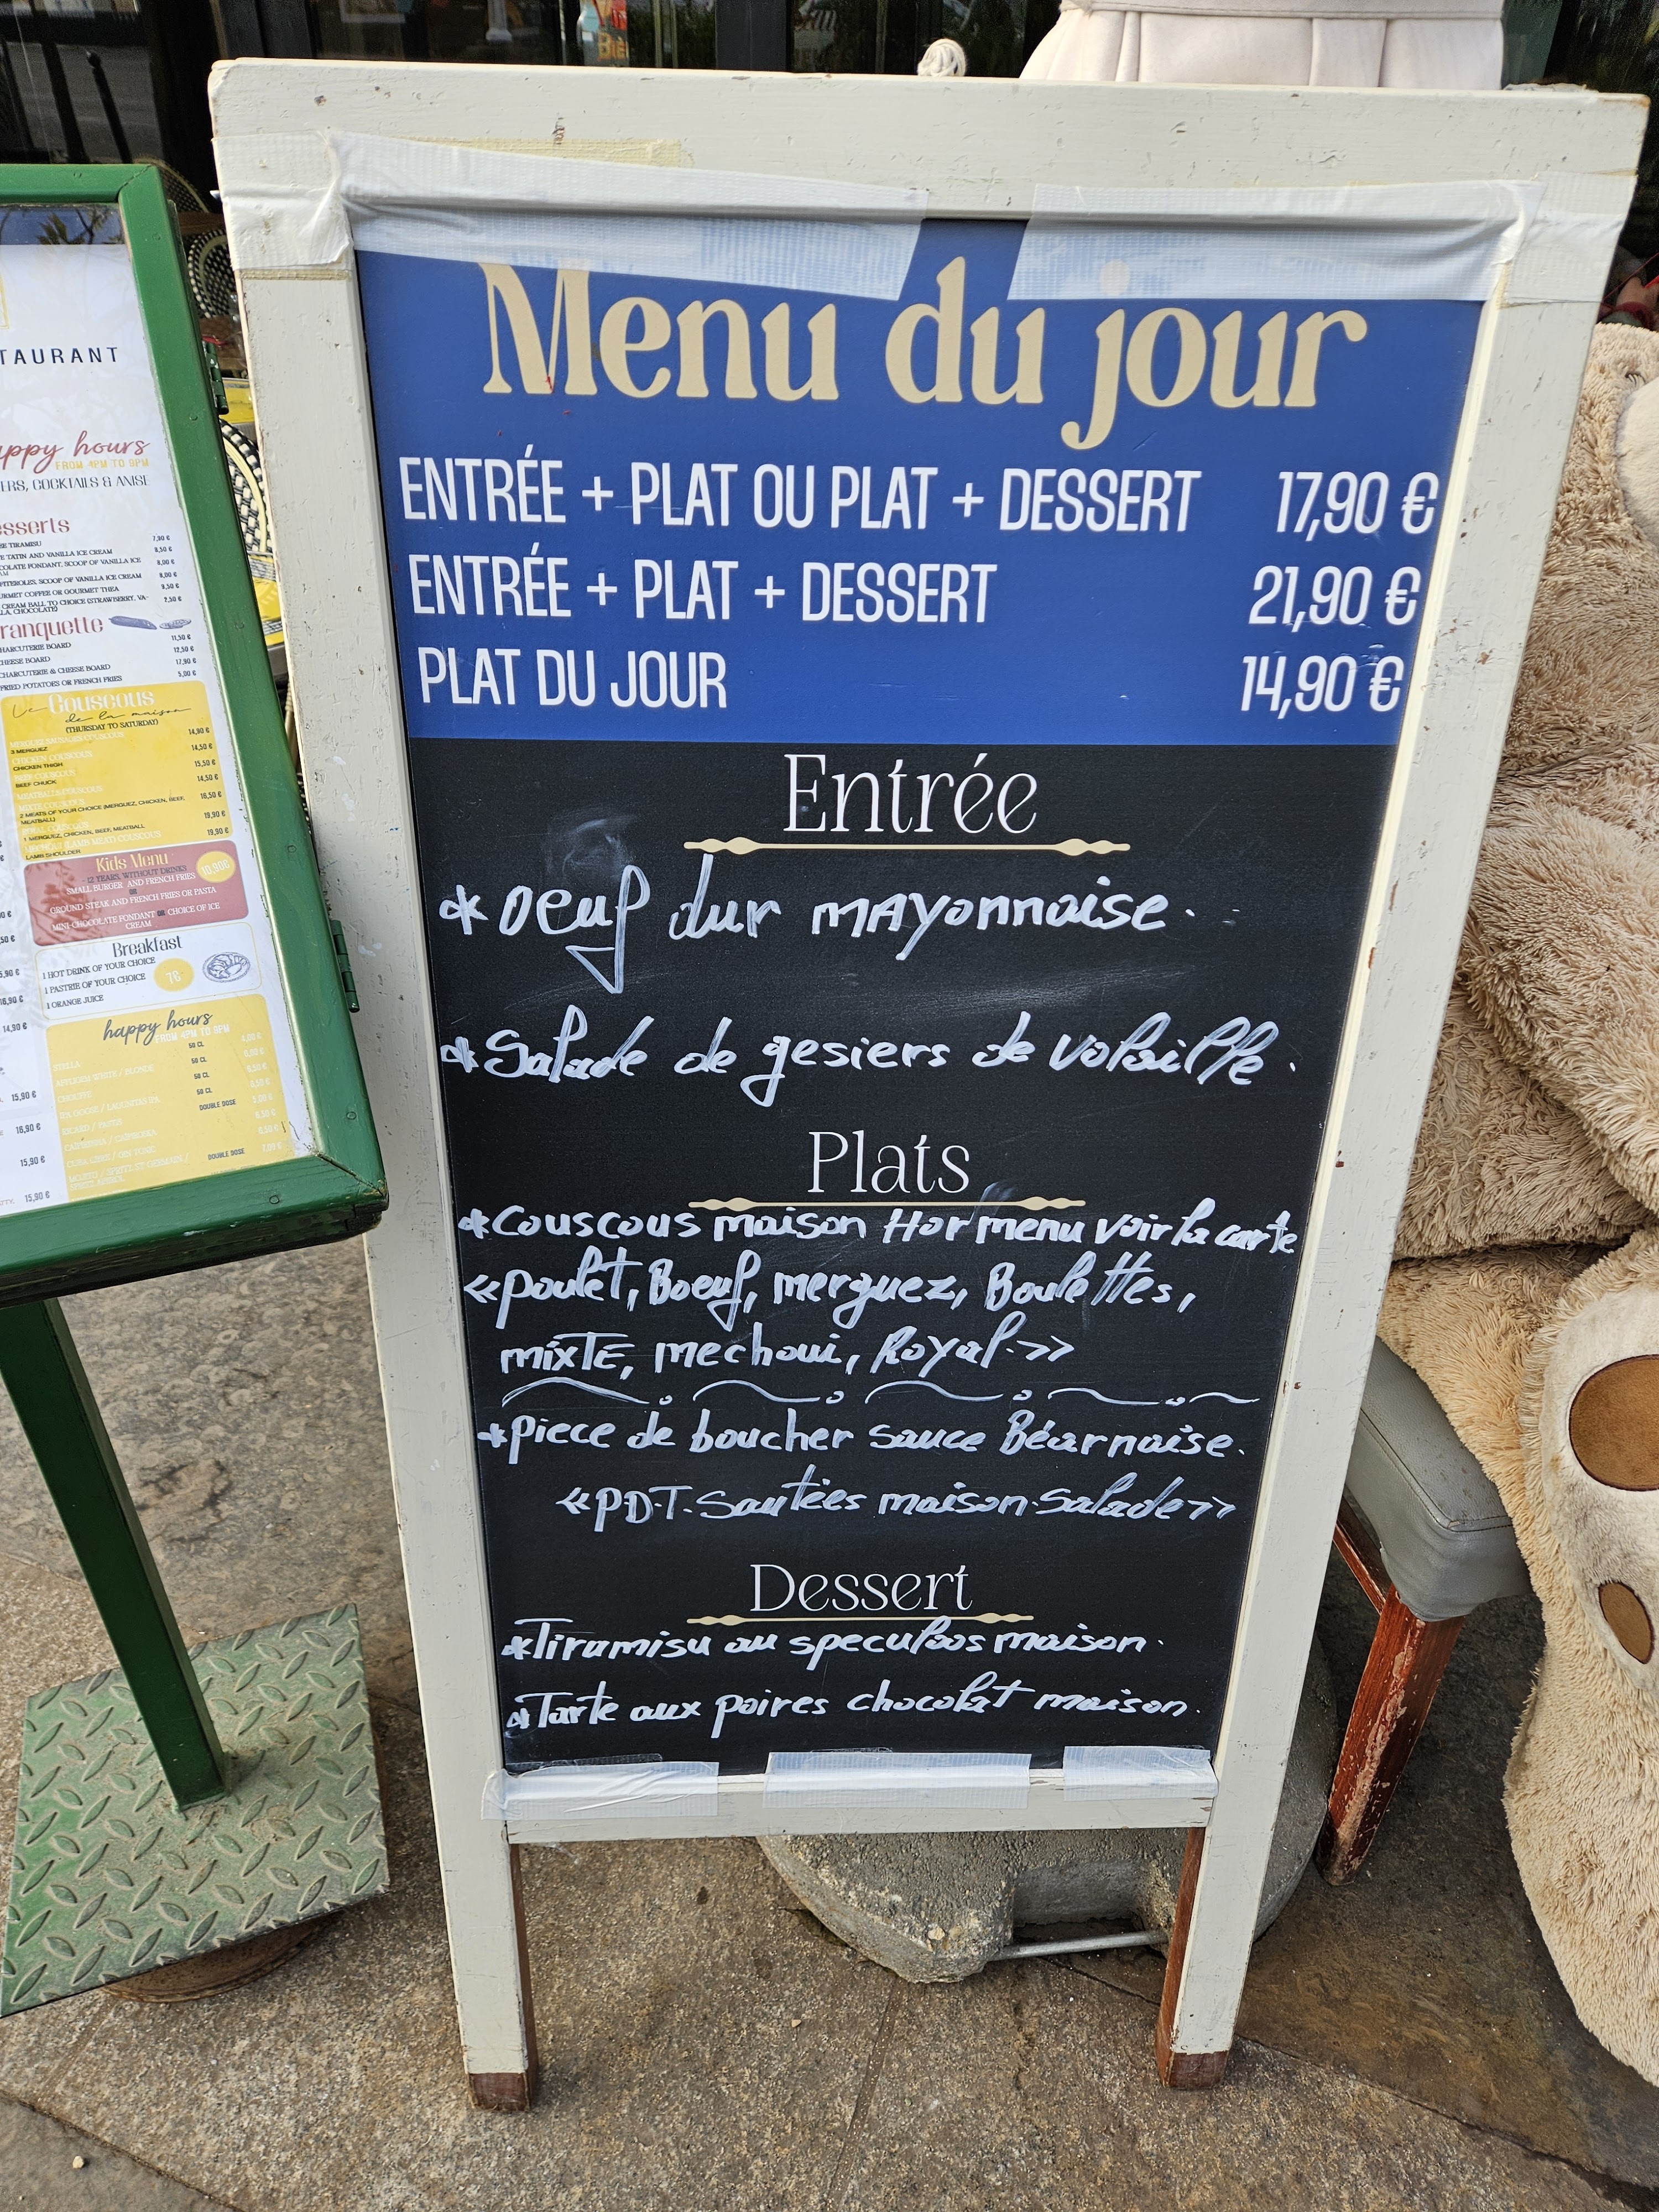 Menu du jour
ENTRÉE + PLAT OU PLAT + DESSERT 17,90 €
ENTRÉE + PLAT + DESSERT 21,90 €
PLAT DU JOUR 14,90 €
Entrée
*oeuf dur mayonnaise.
*Salade de gesiers de volaille.
Plats
*Couscous maison Hor menu voir la carte
«poulet, Boeuf, merguez, Boulettes,
mixTE, mechoui, Royal.»
*piece de boucher sauce Béarnaise.
«P.D.T. Sautées maison. Salade»
Dessert
*Tiramisu au speculoos maison.
*Tarte aux poires chocolat maison.
TAURANT
appy hours
FROM 4PM TO 8PM
ERS, COCKTAILS & ANISE
esserts
TIRAMISU 7,90 €
TATIN AND VANILLA ICE CREAM 8,50 €
COLATE FONDANT, SCOOP OF VANILLA ICE 8,00 €
FITEROLES, SCOOP OF VANILLA ICE CREAM 8,00 €
URMET COFFEE OR GOURMET THEA 9,50 €
CREAM BALL TO CHOICE (STRAWBERRY, VA- 7,50 €
LLA, CHOCOLATE)
ranquette
HARCUTERIE BOARD 11,50 €
HEESE BOARD 12,50 €
CHARCUTERIE & CHEESE BOARD 17,90 €
FRIED POTATOES OR FRENCH FRIES 5,00 €
Le Couscous
de la maison
(THURSDAY TO SATURDAY)
14,90 €
3 MERGUEZ
CHICKEN COUSCOUS 14,50 €
CHICKEN THIGH
BEEF COUSCOUS 15,50 €
BEEF CHUCK
MEATBALLS COUSCOUS 14,50 €
MIXTE COUSCOUS
2 MEATS OF YOUR CHOICE (MERGUEZ, CHICKEN, BEEF, 18,50 €
MEATBALL)
ROYAL COUSCOUS 19,90 €
1 MERGUEZ, CHICKEN, BEEF, MEATBALL
19,90 €
LAMB SHOULDER
Kids Menu
- 12 YEARS, WITHOUT DRINKS 10,90€
SMALL BURGER AND FRENCH FRIES
OR
GROUND STEAK AND FRENCH FRIES OR PASTA
MINI-CHOCOLATE FONDANT OR CHOICE OF ICE
CREAM
Breakfast
1 HOT DRINK OF YOUR CHOICE
1 PASTRIE OF YOUR CHOICE 7€
1 ORANGE JUICE
happy hours
FROM 4PM TO 8PM
50 CL
50 CL
50 CL
50 CL
DOUBLE DOSE
DOUBLE DOSE
14,90 €
15,90 €
16,90 €
15,90 €
15,90 €